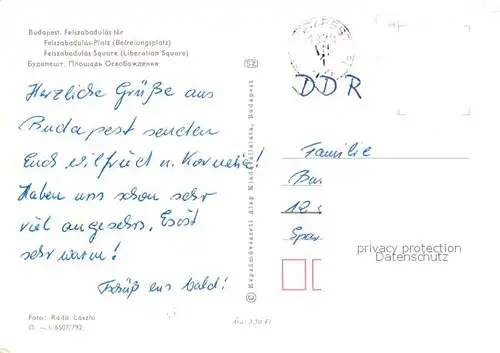 Budapest. Felszabadulás tér
Felszabadulás-Platz (Befreiungsplatz)
Felszabadulás Square (Liberation Square)
Будапешт. Площадь Освобождения
Herzliche Grüße aus
Budapest senden
Euch Wilfried u. Kornelia!
Haben uns schon sehr
viel angesehn. Es ist
sehr warm!
Tschüß bis bald!
Foto: Radó László
© Képzőművészeti Alap Kiadóvállalata, Budapest
Ára: 3,50 Ft
DDR
Familie
privacy protection
Datenschutz